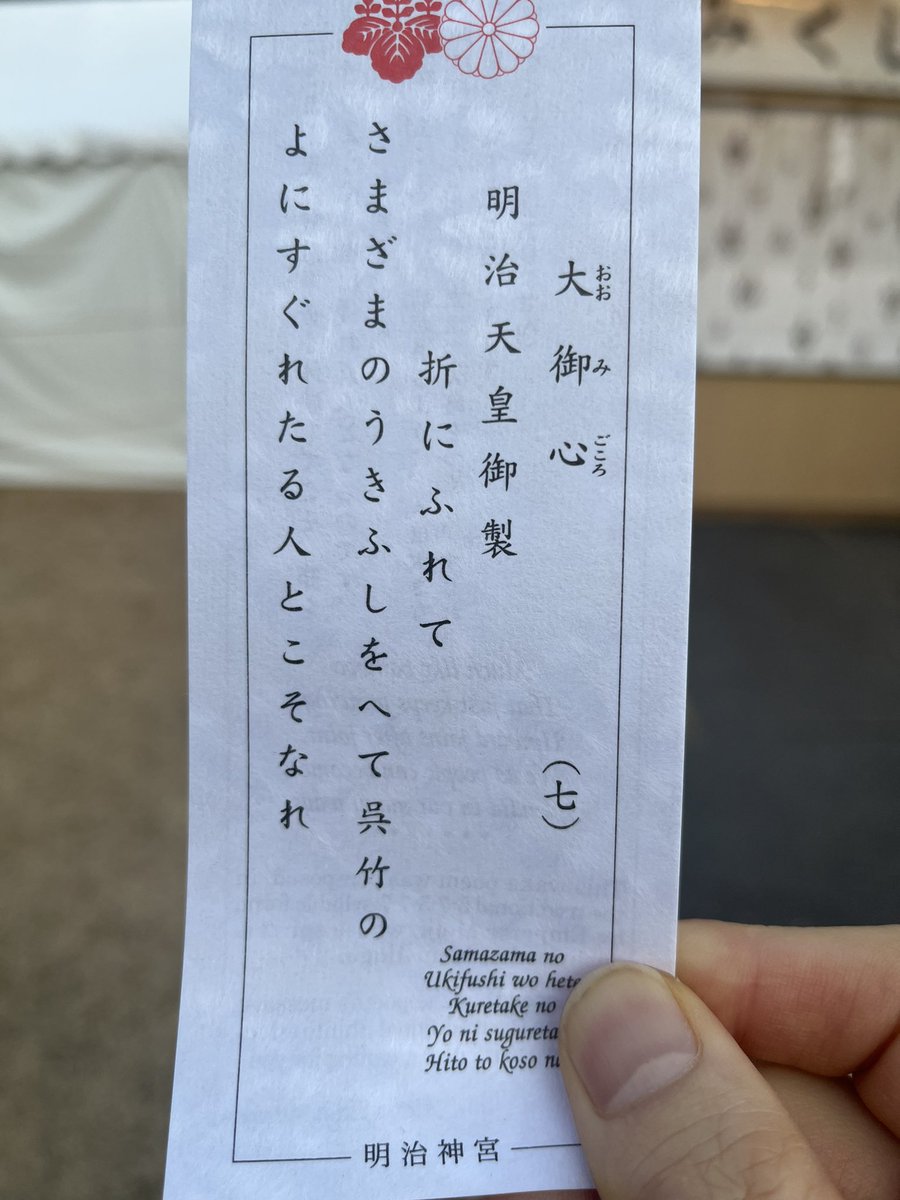 大御心
おおみごころ
(七)
明治天皇御製
折にふれて
さまざまのうきふしをへて呉竹の
よにすぐれたる人とこそなれ
Samazama no
Ukifushi wo hete
Kuretake no
Yo ni sugureta
Hito to koso n
明治神宮